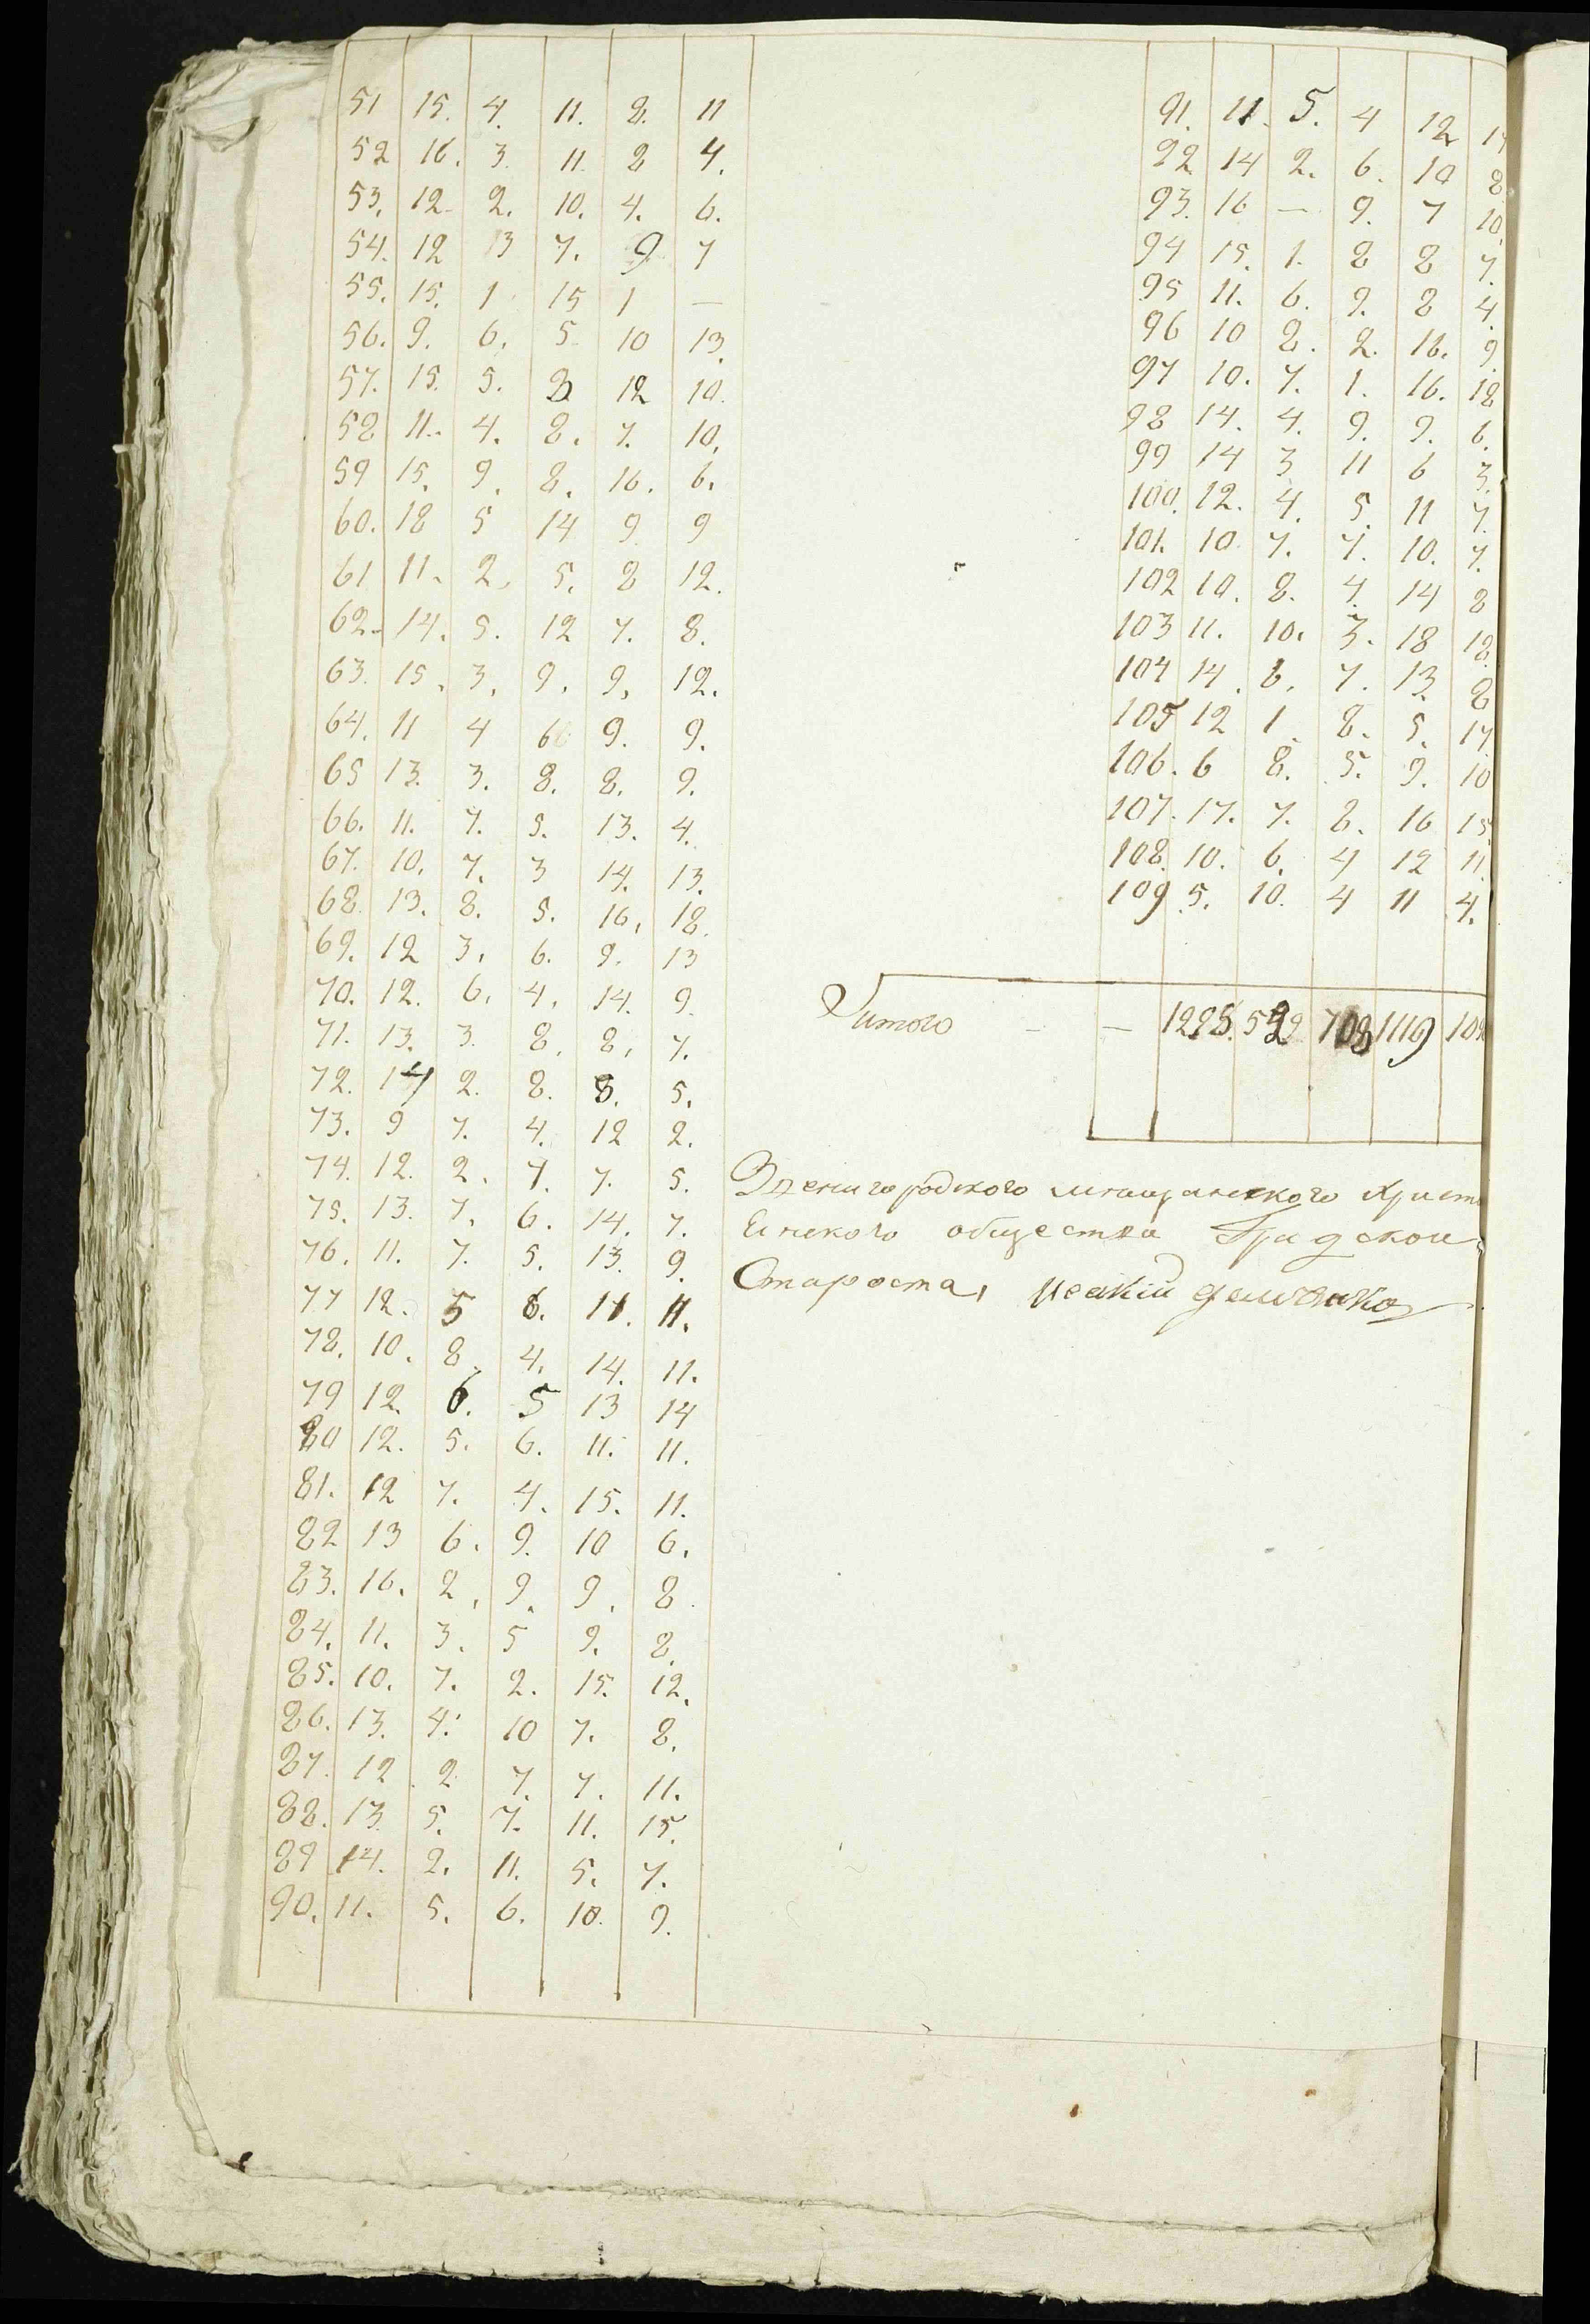 51 15. 4. 11. 8. 11
52 16. 3. 11. 8 4.
53. 12. 2. 10. 4. 6.
54. 12 13 7. 9 7
55. 15. 1 15 1 —
56. 9. 6. 5. 10 13.
57. 15. 5. 8 12 10.
58 11. 4. 8. 7. 10.
59 15. 9. 8. 16. 6.
60. 18 5 14 9 9
61 11. 2. 5. 8 12.
62. 14. 5. 12 7. 8.
63. 15. 3. 9. 9. 12.
64. 11 4 6 9. 9.
65 13. 3. 8. 8. 9.
66. 11. 7. 5. 13. 4.
67. 10. 7. 3 14. 13.
68. 13. 8. 5. 16. 18.
69. 12 3. 6. 9. 13
70. 12. 6. 4. 14. 9.
71. 13. 3. 8. 8. 7.
72. 14 2. 8. 8. 5.
73. 9 7. 4. 12 2.
74. 12. 2. 7. 7. 5.
75. 13. 7. 6. 14. 7.
76. 11. 7. 5. 13. 9.
77 12. 5 6. 11. 11.
78. 10. 8. 4. 14. 11.
79 12. 6. 5 13 14
80 12. 5. 6. 11. 11.
81. 12 7. 4. 15. 11.
82 13 6. 9. 10 6.
83. 16. 2. 9. 9. 8.
84. 11. 3. 5 9. 8.
85. 10. 7. 2. 15. 12.
86. 13. 4. 10 7. 8.
87. 12. 2 7. 7. 11.
88. 13. 5. 7. 11. 15.
89 14. 2. 11. 5. 7.
90. 11. 5. 6. 10. 9.
91. 11. 5. 4 12
92 14 2. 6. 10 8
93. 16 — 9. 7 10.
94 15. 1. 8 8 7.
95 11. 6. 9. 8 4.
96 10 8. 2. 16. 9.
97 10. 7. 1. 16. 18
98 14. 4. 9. 9. 6.
99 14 3 11 6 3.
100. 12. 4. 5. 11 7.
101. 10. 7. 7. 10. 7.
102 10. 8. 4. 14 8
103 11. 10. 3. 18 18.
104 14. 6. 7. 13. 8
105 12 1. 8. 5. 17.
106. 6 8. 5. 9. 10
107. 17. 7. 8. 16 15.
108. 10. 6. 4 12 11.
109 5. 10. 4 11 4.
Итого — — 1225. 529 708 1119
Звенигородского мещанского Христи
Еинского общества Градской
Староста,